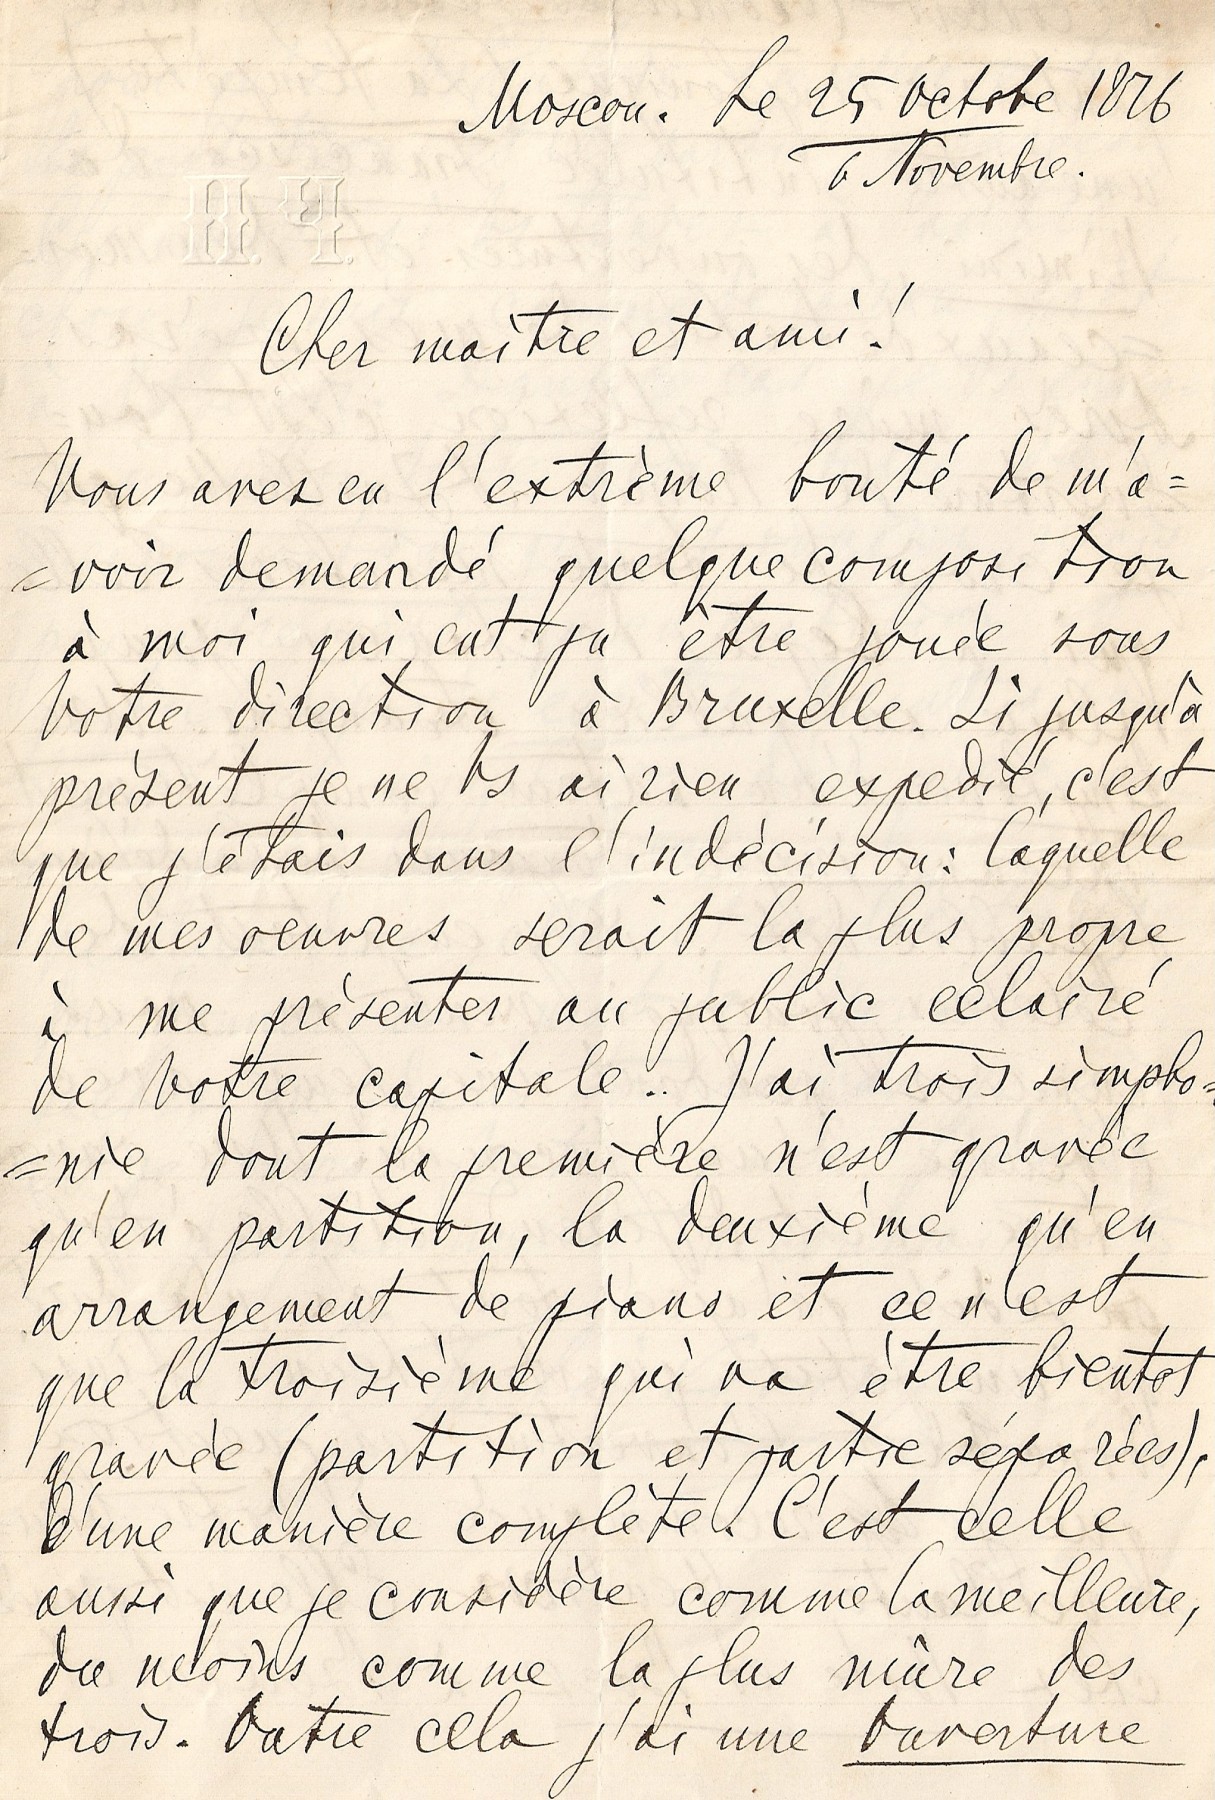 Moscou. Le 25 Octobe 1876
6 Novembre.
П. Ч.
Cher maître et ami!
Vous avez eu l'extrème bonté de m'a=
=voir demandé quelque composition
à moi qui eut pu être jouée sous
Votre direction à Bruxelle. Si jusqu'à
présent je ne Vs ai rien expedié, c'est
que j'étais dans l'indécision: laquelle
de mes oeuvres serait la plus propre
à me présenter au public eclairé
de Votre capitale.. J'ai trois simpho=
=nie dont la première n'est gravée
qu'en partition, la deuxième qu'en
arrangement de piano et ce n'est
que la troisième qui va être bientot
gravée (partition et partie séparées),
d'une manière complète. C'est celle
aussi que je considère comme la meilleure,
du moins comme la plus mûre des
trois. Outre cela j'ai une Ouverture